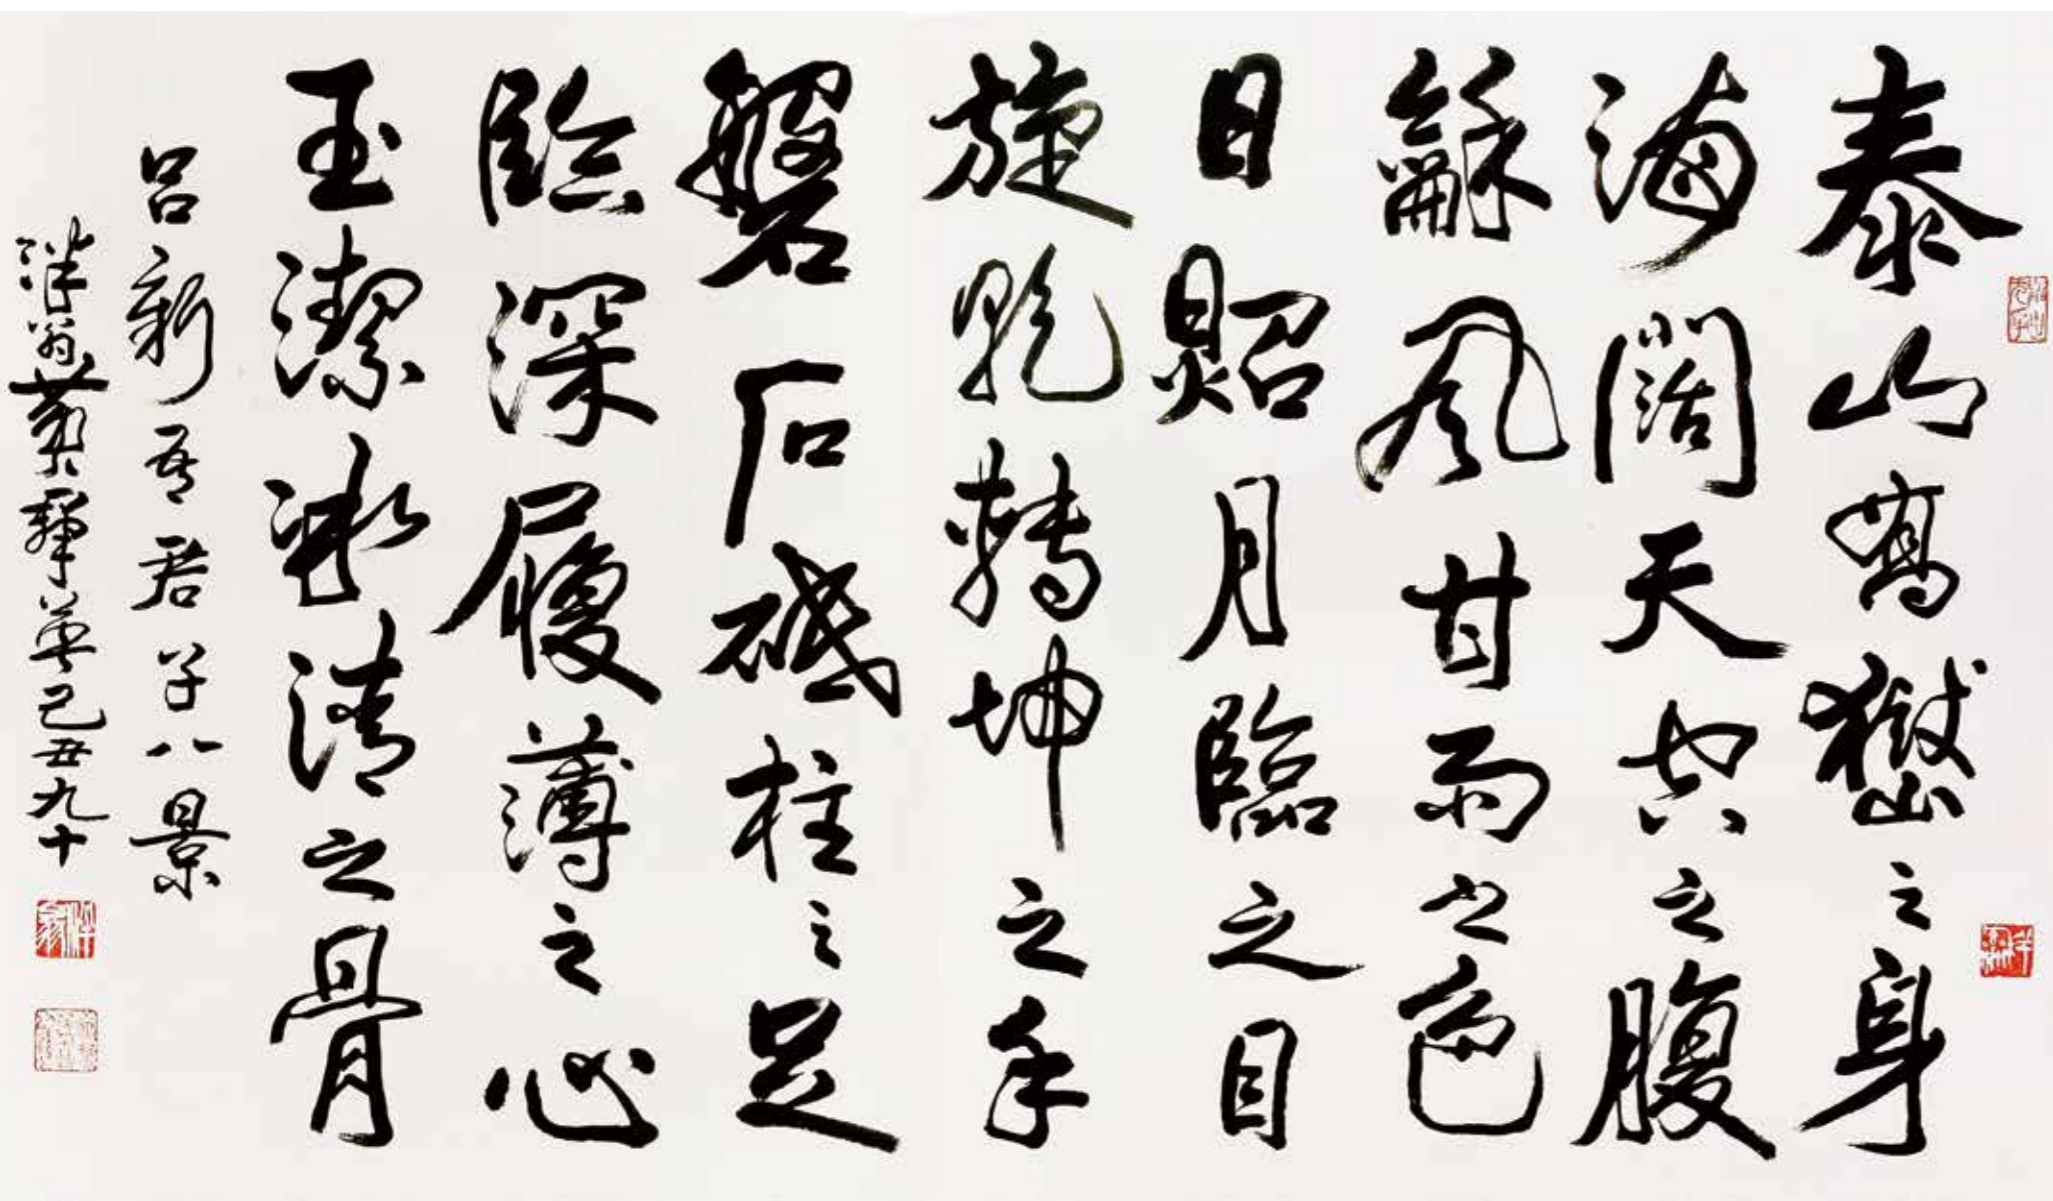 泰山喬嶽之身
海闊天空之腹
龢風甘雨之色
日照月臨之目
旋乾轉坤之手
磐石砥柱之足
臨深履薄之心
玉潔冰清之骨
呂新吾君子八景
翁黃英己丑九十